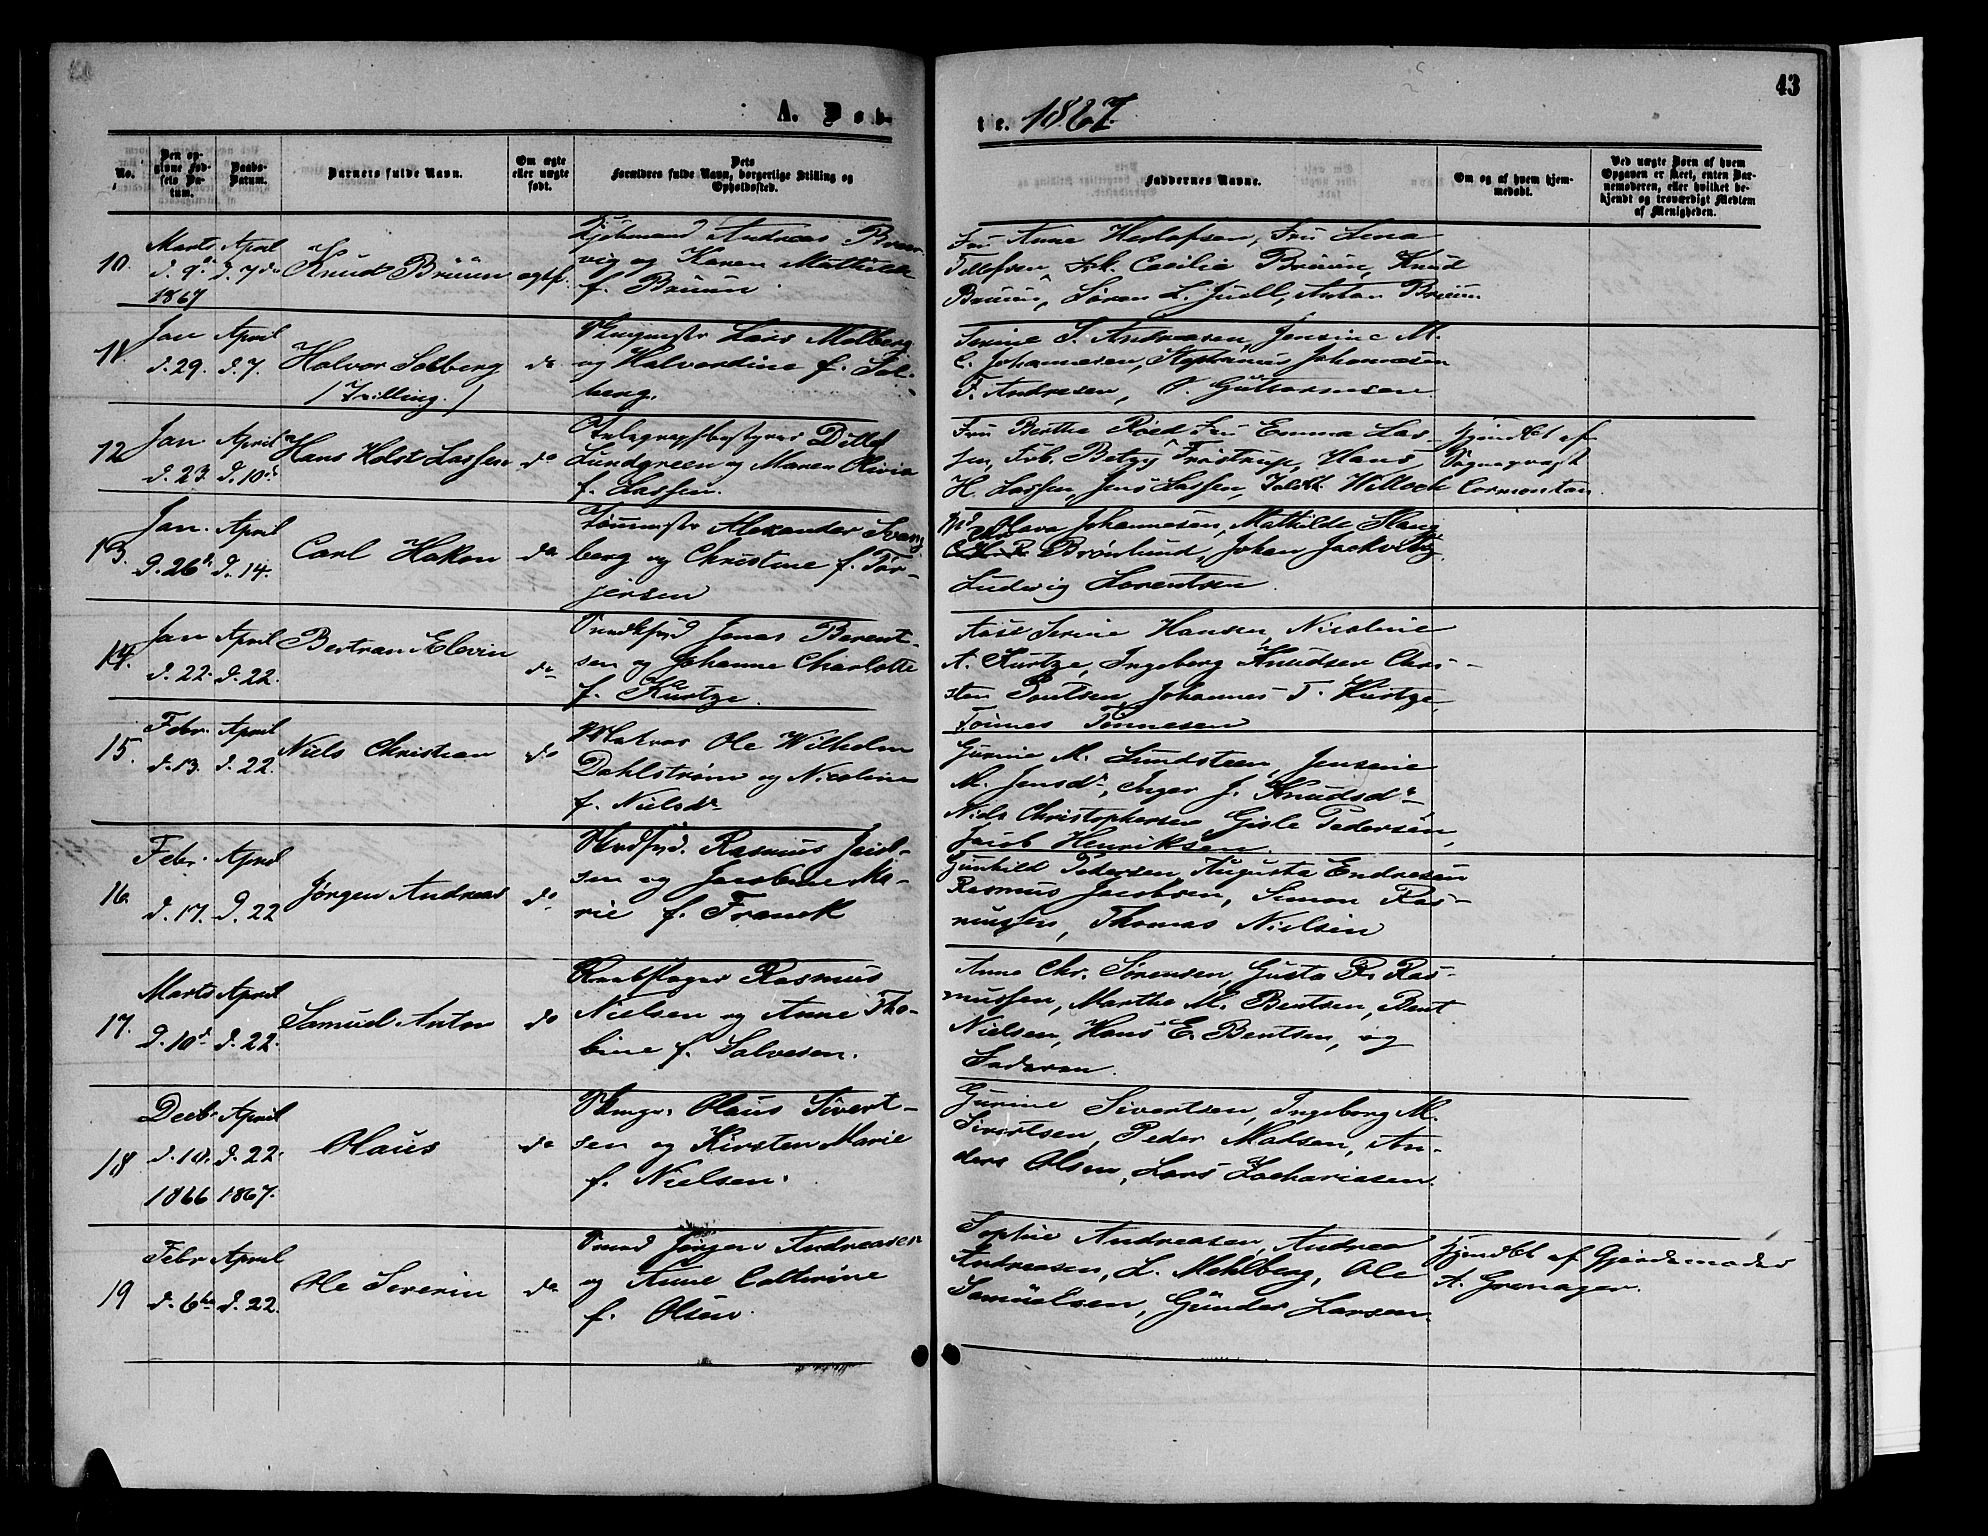 43
A. Døbte. 1867.
No.
Den opgivne Fødsels Datum.
Daabs-Datum.
Barnets fulde Navn.
Om ægte eller uægte født.
Dets Forældres fulde Navn, borgerlige Stilling og Opholdssted.
Faddernes Navne.
Om og af hvem hjemmedøbt.
Ved uægte Børn af hvem Opgaven er skeet, enten Barnemoderen, eller hvilket bekjendt og troværdigt Medlem af Menigheden.
10. Marts d. 9de 1867 April d. 7de Knud Brüün ægtf.
Kjøbmand Andreas
vig og Karen Mathilde
f. Brüün.
Fru Anne Herlofsen, Fru Lina
Tellefsen, Frk. Cæcilia Brüün, Knud
Brüün, Søren L. Juell, Anton Brüün
11. Jan d. 29. April d. 7. Halvor Solberg do
/Tvilling./
Lars Molberg
og Halvordine f. Sol-
berg.
Serine S. Andreasen, Jensine M.
C. Johannesen, Stephanus Johannesen
T. Andresen, O. Guttormsen
12 Jan d. 23. April d. 10de Hans Holst Lassen do
Telegraphbestyrer Ditlef
Lundgreen og Maren Olivia
f. Lassen.
Fru Berthe Röed Fru Emma Las-
sen, Frk. Betzy Frøstrup, Hans
H. Lassen, Jens Lassen, Willoch
Hjmdbt af
Sogneprest
Cormontan.
13. Jan. d. 26de April d. 14. Carl Hakon do
Tømmermstr Alexander Svane
berg og Christine f. Tor-
jersen
Olava Johannesen, Mathilde Hauge
Brønlund, Johan Jackwitz
Ludvig Lorentsen.
14. Jan d. 22. April d. 22. Bertran Elevin do
Jonas Berent-
sen og Johanne Charlotte
f. Kurtze.
Aase Serine Hansen, Nicoline
A. Kurtze, Ingeborg Knudsen Chri-
sten Poulsen, Johannes T. Kurtze,
Tønnes Tønnesen
15. Febr. d. 13. April d. 22. Niels Christian do
Matros Ole Wilhelm
Dahlstrøm og Nicoline
f. Nielsdr
Gurine M. Lundsteen, Jensine
M. Jensdr, Inger J. Knudsdr
Niels Christophersen Gisle Pedersen,
Jacob Henriksen.
16. Febr. d. 17. April d. 22 Jørgen Andreas do
Rasmus Jacob-
sen og Jacobine Ma-
rie f. Franck
Gunhild Petersen, Augusta Endresen
Rasmus Jacobsen, Simon Ras-
mussen, Thomas Nielsen
17. Marts d. 10de April d. 22. Samuel Anton do
Reebslager Rasmus
Nielsen og Anne Tho-
bine f. Salvesen.
Anne Chr. Sørensen, Gusta R. Ras-
mussen, Marthe M. Bentsen, Bent
Nielsen, Hans E. Bentsen, og
Faderen.
18 Decbr d. 18. 1866 April d. 22. 1867. Olaus do
Olaus Sivert-
sen og Kirsten Marie
f. Nielsen.
Gurine Sivertsen, Ingeborg M.
Sivertsen, Peder Madsen, An-
ders Olsen, Lars Zachariasen.
19 Febr d. 6te April d. 22. Ole Severin do
Jørgen Andreasen
og Anne Cathrine
f. Olsen.
Sophie Andreasen, Andrea
Andreasen, L. Mehlberg, Ole
Samuelsen, Gunder Larsen.
Hjmdbt af Gjordemoder
A. Grenager.